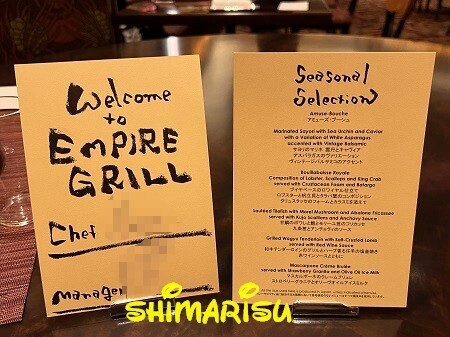 Welcome
to
EMPIRE
GRILL
Chef
Manager
Seasonal
Selection
Amuse-Bouche
アミューズ・ブーシュ
Marinated Sayori with Sea Urchin and Caviar
with a Variation of White Asparagus
accented with Vintage Balsamic
サヨリのマリネ 雲丹とキャヴィア
アスパラガスのヴァリエーション
ヴィンテージバルサミコのアクセント
Bouillabaisse Royale
Composition of Lobster, Scallops and King Crab
served with Crustacean Foam and Botargo
ブイヤベースのロワイヤル仕立て
ロブスターと帆立貝とタラバ蟹のコンポジション
クリュスタッセのフォームとカラスミを添えて
Sautéed Tilefish with Morel Mushroom and Abalone Fricassee
served with Kujo Scallions and Anchovy Sauce
甘鯛のポワレと鮑とモリーユ茸のフリカッセ
九条葱とアンチョヴィのソース
Grilled Wagyu Tenderloin with Salt-Crusted Lamb
served with Red Wine Sauce
和牛テンダーロインのグリルとハーブ香る仔羊の塩釜焼き
赤ワインソースとともに
Mascarpone Crème Brulée
served with Strawberry Granita and Olive Oil Ice Milk
マスカルポーネのクレームブリュレ
ストロベリーグラニテとオリーヴオイルアイスミルク
SHIMARISU